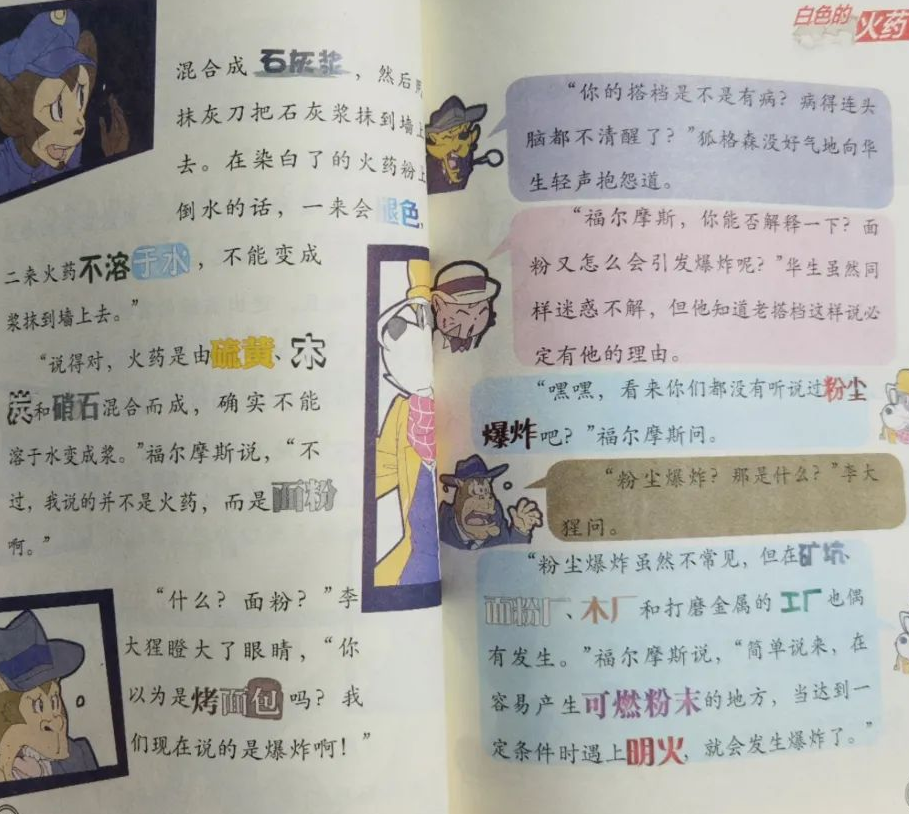 混合成石灰浆，然后
抹灰刀把石灰浆抹到墙上
去。在染白了的火药粉上
倒水的话，一来会褪色，
二来火药不溶于水，不能变成
浆抹到墙上去。”
“说得对，火药是由硫黄、木
炭和硝石混合而成，确实不能
溶于水变成浆。”福尔摩斯说，“不
过，我说的并不是火药，而是面粉
啊。”
“什么？面粉？”李
大猩瞪大了眼睛，“你
以为是烤面包吗？我
们现在说的是爆炸啊！”
白色的火药
“你的搭档是不是有病？病得连头
脑都不清醒了？”狐格森没好气地向华
生轻声抱怨道。
“福尔摩斯，你能否解释一下？面
粉又怎么会引发爆炸呢？”华生虽然同
样迷惑不解，但他知道老搭档这样说必
定有他的理由。
“嘿嘿，看来你们都没有听说过粉尘
爆炸吧？”福尔摩斯问。
“粉尘爆炸？那是什么？”李大
猩问。
“粉尘爆炸虽然不常见，但在矿坑、
面粉厂、木厂和打磨金属的工厂也偶
有发生。”福尔摩斯说，“简单说来，在
容易产生可燃粉末的地方，当达到一
定条件时遇上明火，就会发生爆炸了。”